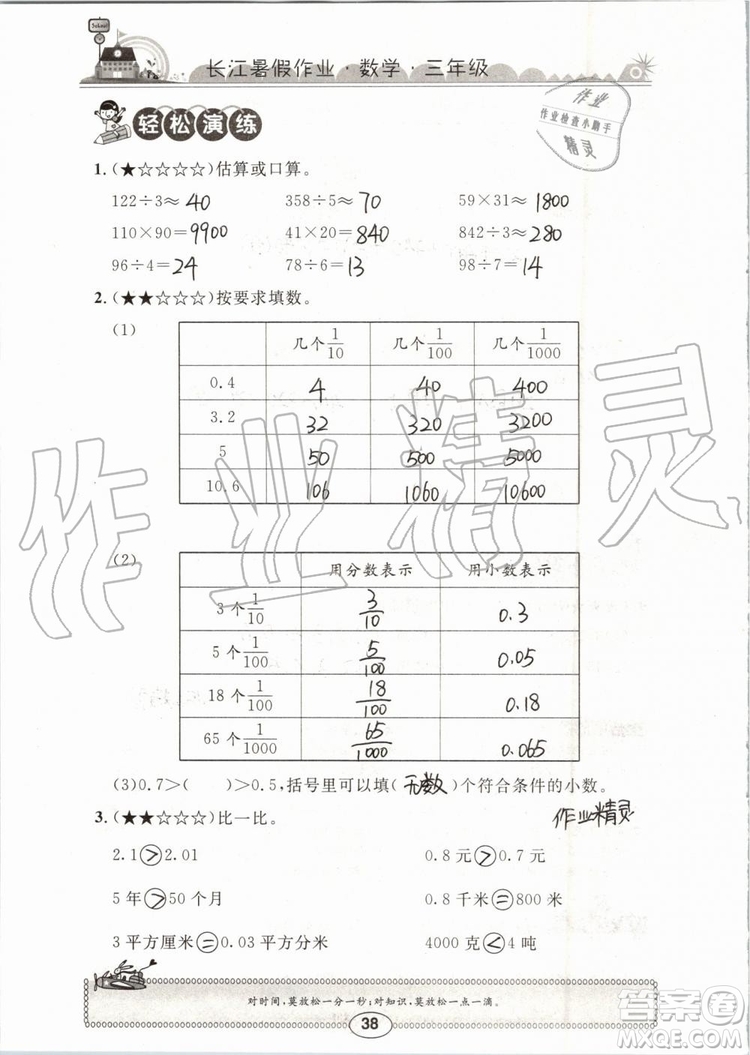 School
长江暑假作业·数学·三年级
轻松演练
作业
作业检查小助手
精灵
1.(★☆☆☆☆)估算或口算。
122÷3≈ 40 358÷5≈ 70 59×31≈ 1800
110×90= 9900 41×20= 840 842÷3≈ 280
96÷4= 24 78÷6= 13 98÷7= 14
2.(★★☆☆☆)按要求填数。
(1)
几个1/10 几个1/100 几个1/1000
0.4 4 40 400
3.2 32 320 3200
5 50 500 5000
10.6 106 1060 10600
(2)
用分数表示 用小数表示
3个1/10 3/10 0.3
5个1/100 5/100 0.05
18个1/100 18/100 0.18
65个1/1000 65/1000 0.065
(3)0.7>( )>0.5,括号里可以填(无数)个符合条件的小数。
3.(★★☆☆☆)比一比。
作业精灵
2.1>2.01 0.8元>0.7元
5年>50个月 0.8千米=800米
3平方厘米=0.03平方分米 4000克<4吨
对时间,莫放松一分一秒;对知识,莫放松一点一滴。
38
作业精灵
答案圈
MXQE.COM